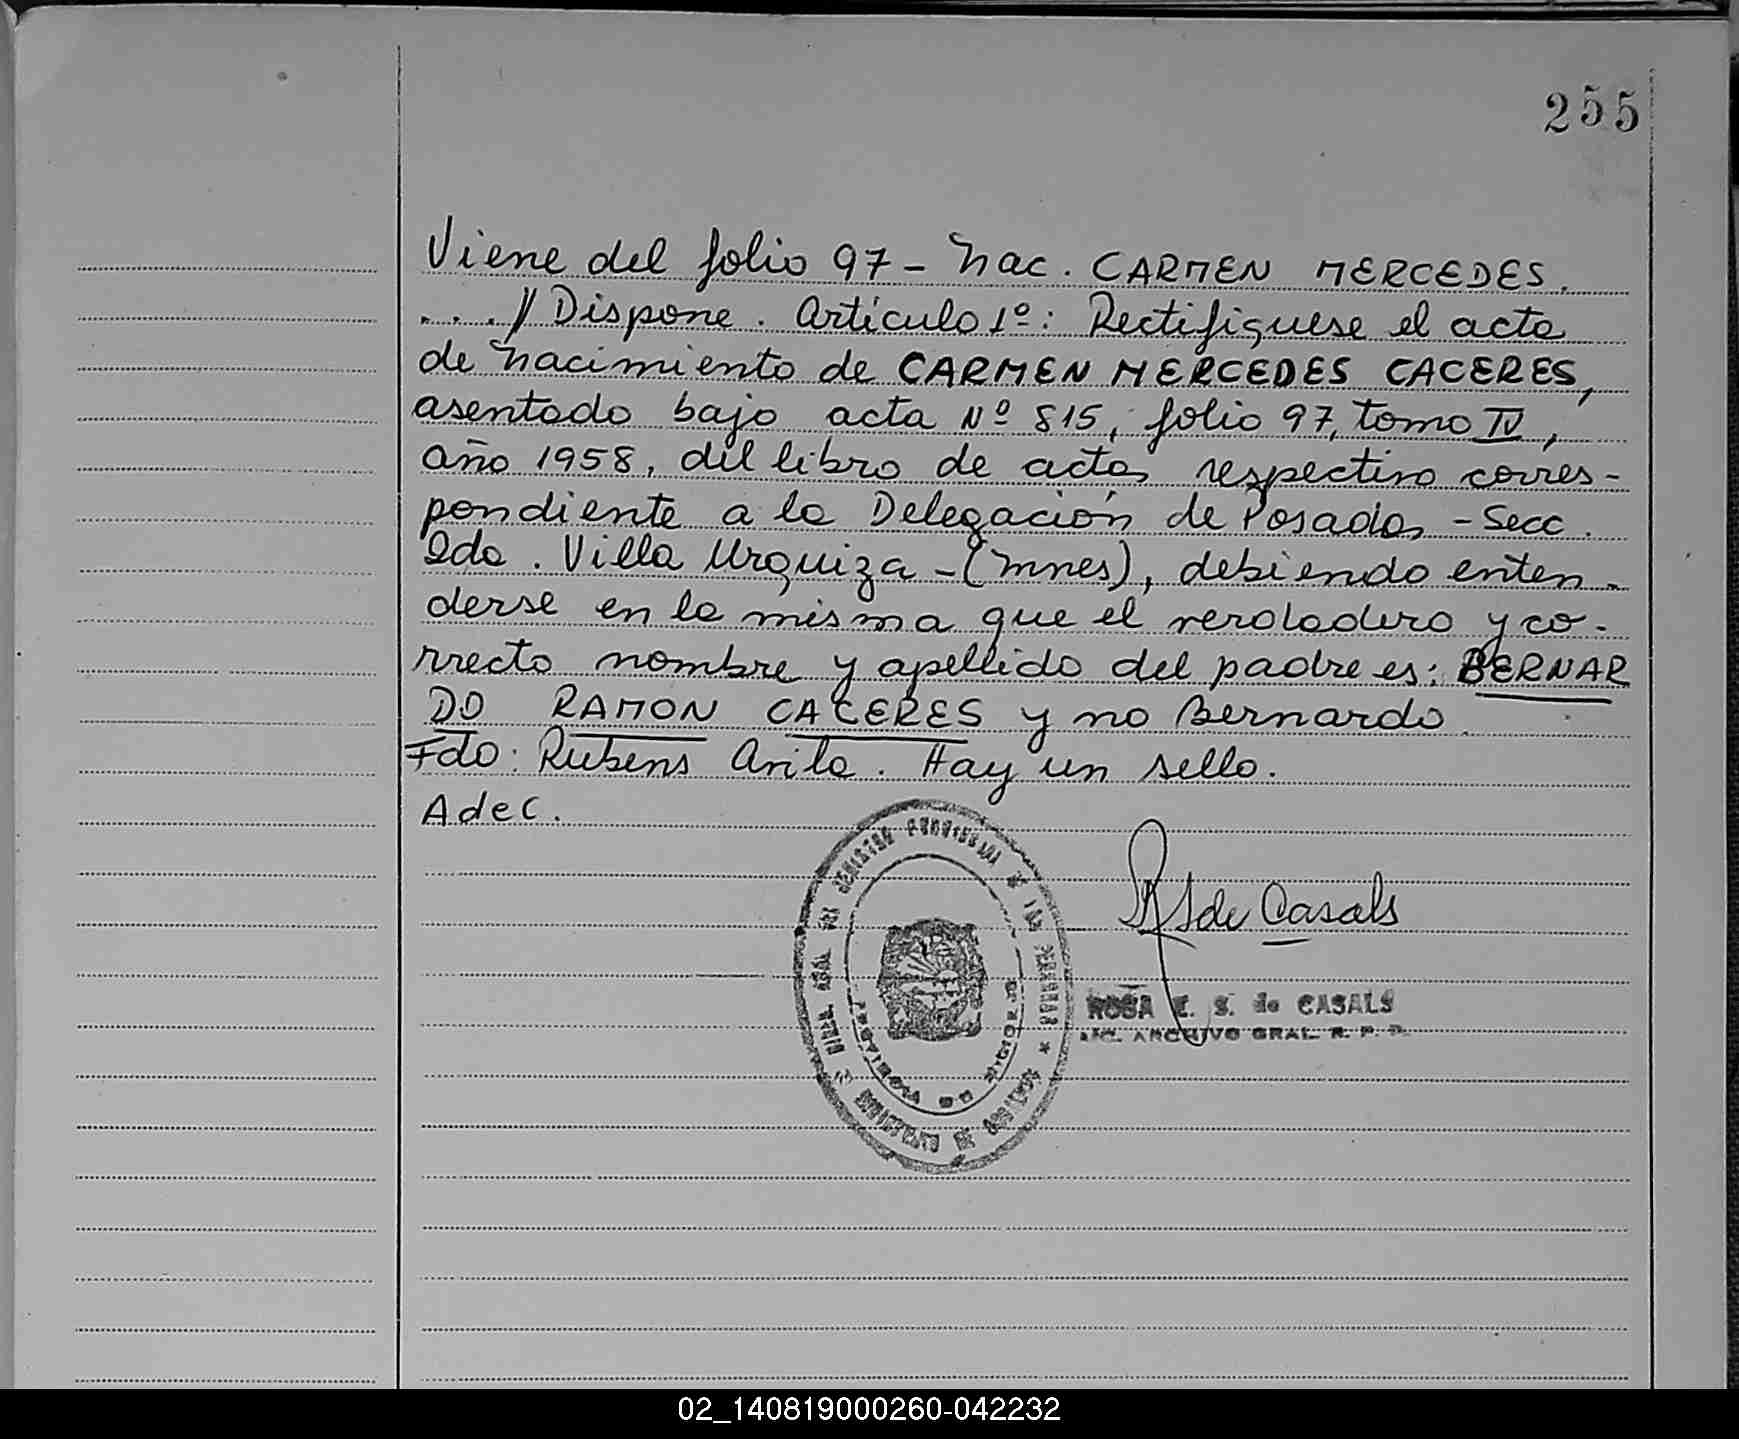 255
Viene del folio 97 - Nac. CARMEN MERCEDES.
. . . // Dispone. Artículo 1º: Rectifíquese el acta
de Nacimiento de CARMEN MERCEDES CACERES,
asentado bajo acta Nº 815, folio 97, tomo IV,
año 1958, del libro de actas respectivo corres-
pondiente a la Delegación de Posadas - Secc.
2da. Villa Urquiza - (Mnes), debiendo enten-
derse en la misma que el verdadero y co-
rrecto nombre y apellido del padre es: BERNAR
DO RAMON CACERES y no Bernardo.
Fdo: Rubens Avila. Hay un sello.
AdeC.
R S de Casals
DIREC. GRAL. DEL REGISTRO PROVINCIAL DE LAS PERSONAS * MINISTERIO DE GOBIERNO
PROVINCIA DE MISIONES
ROSA E. S. de CASALS
ARCHIVO GRAL. R. P. P.
02_140819000260-042232